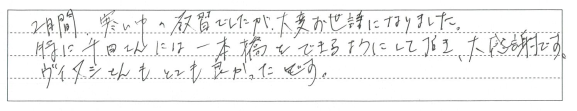 2月間 寒い中の教習でしたが、大変お世話になりました。
特に千田さんには一本橋をできるようにして頂き、大感謝です。
ヴィタシさんもとても良かったです。